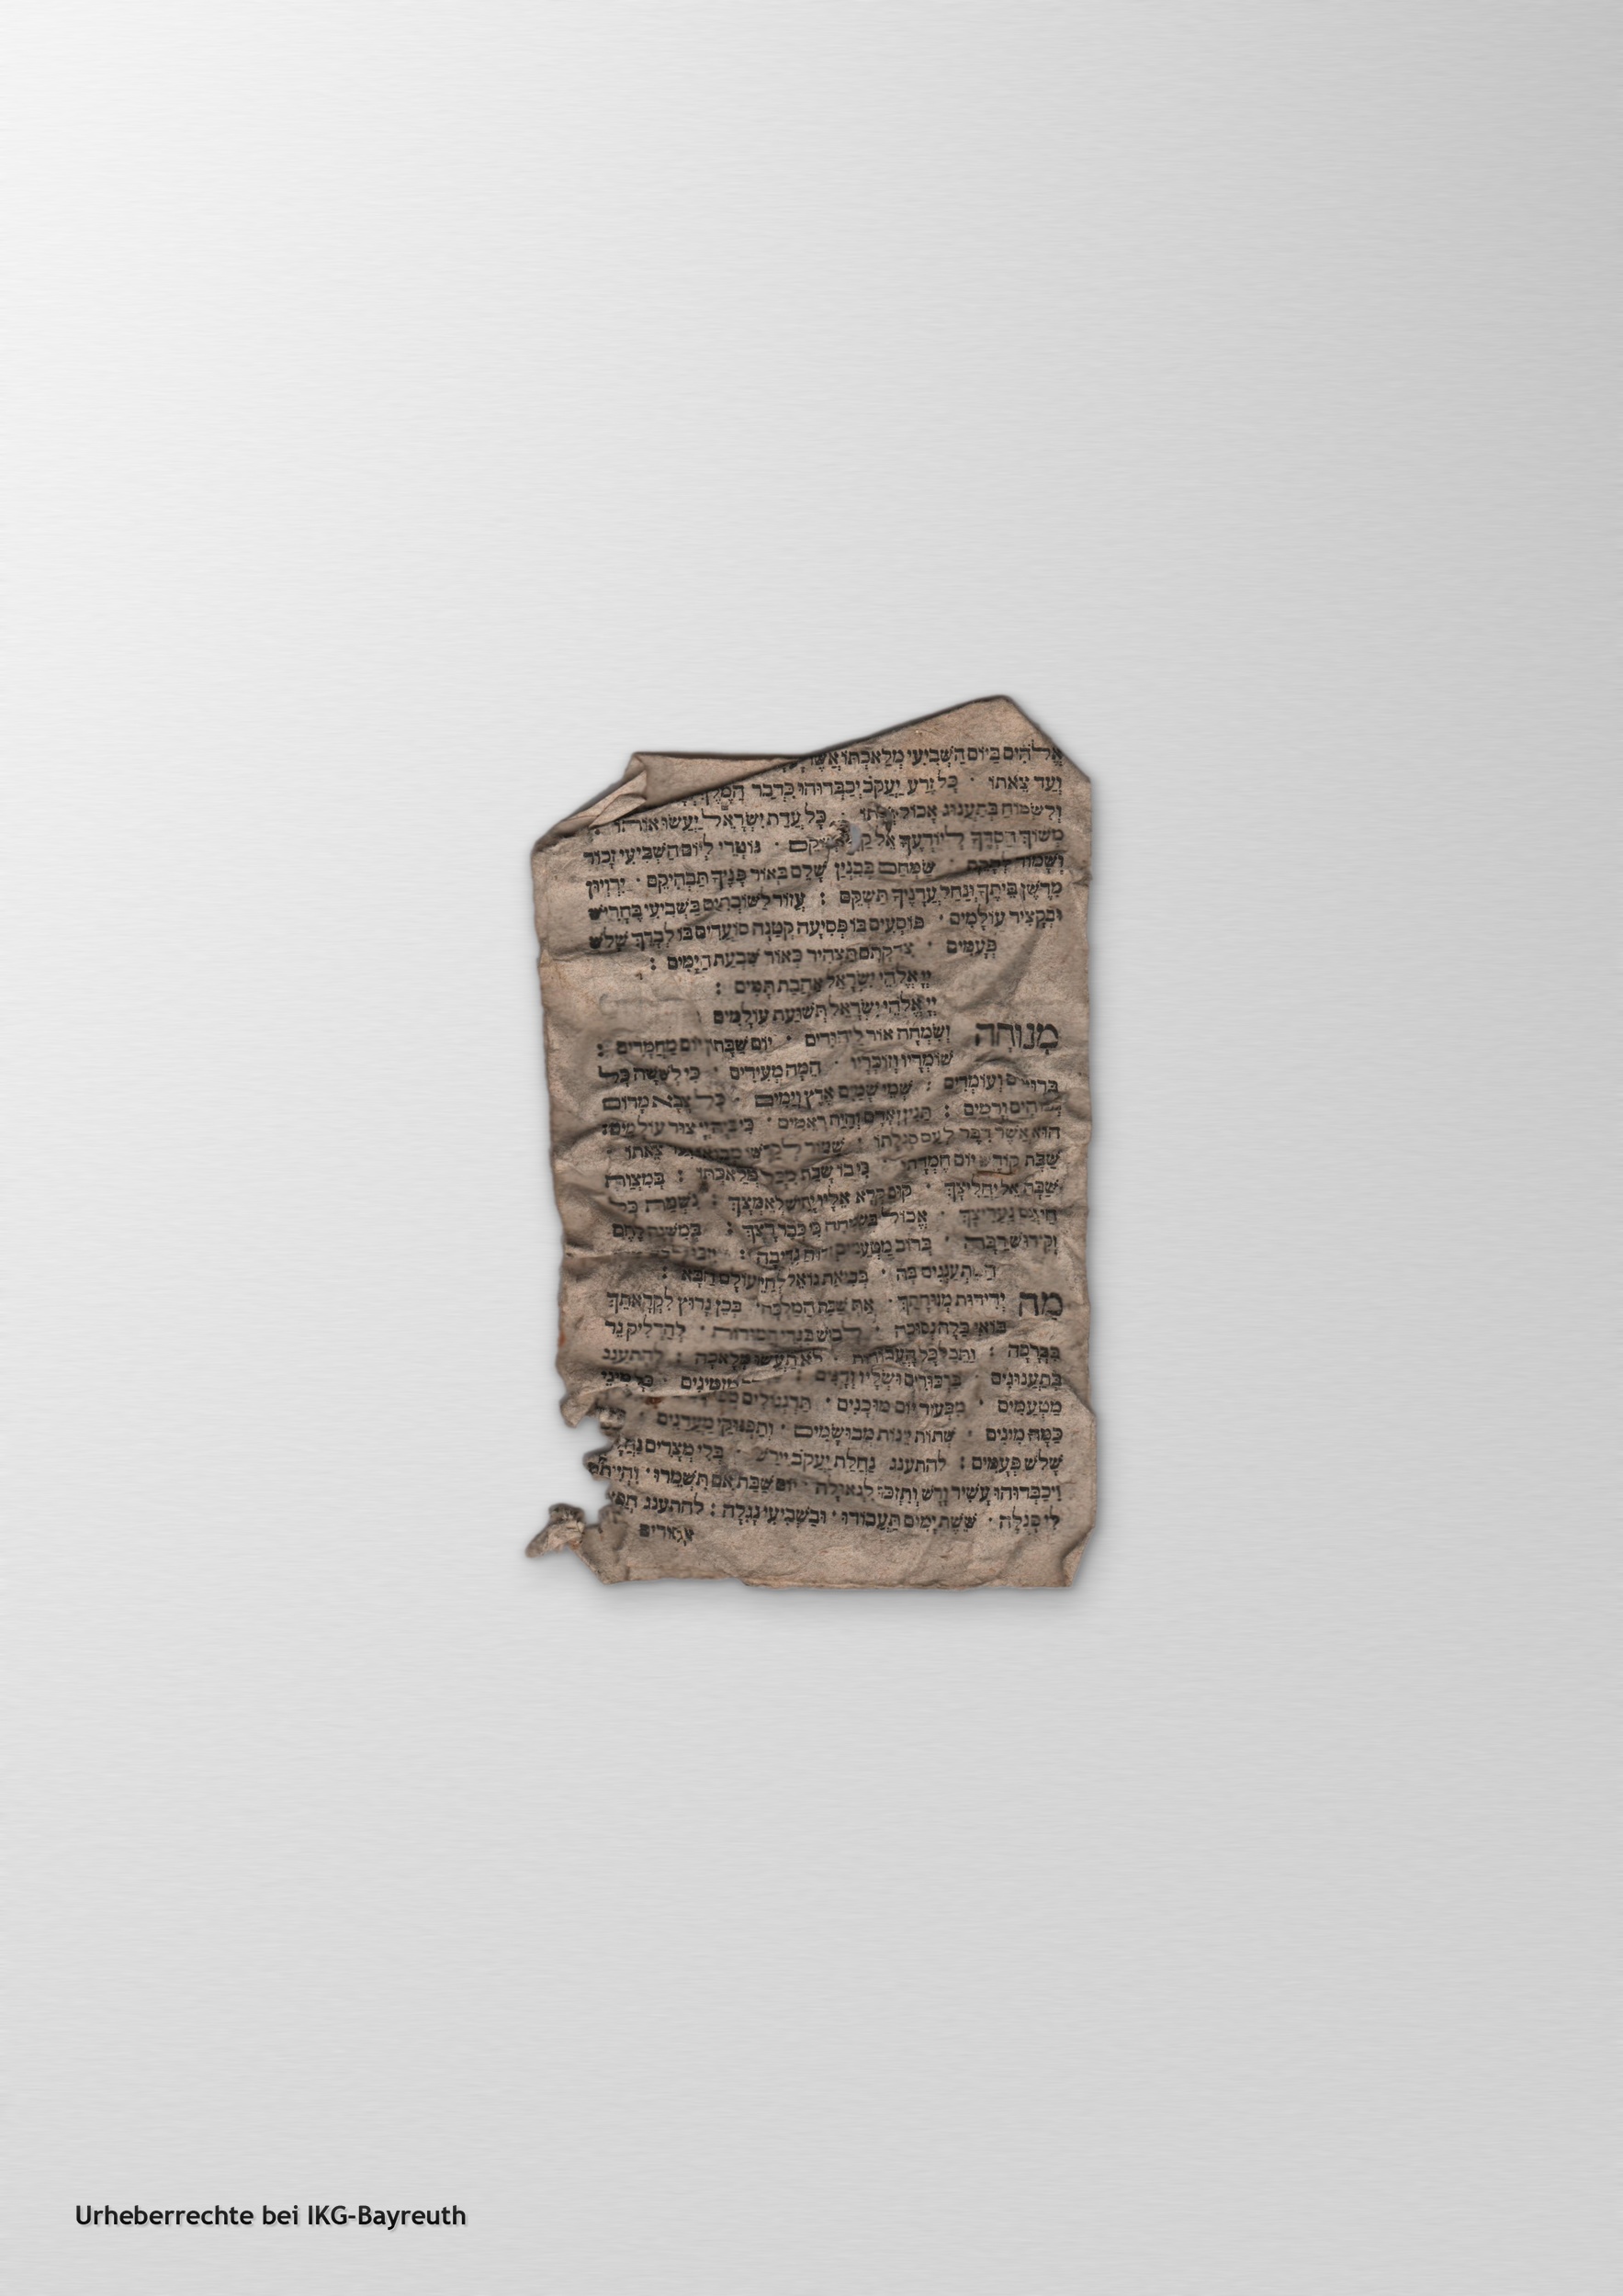 אֱלהִים בַּיּוֹם הַשְּׁבִיעִי מְלַאכְתּוֹ אֲשֶׁר
וְעַד צֵאתוֹ · כָּל זֶרַע יַעֲקֹב יְכַבְּדוּהוּ כִּדְבַר הַמֶּלֶךְ
וְלִשְׂמוֹחַ בְּתַעֲנוּג אָכוֹל · כָּל עֲדַת יִשְׂרָאֵל יַעֲשׂוּ אוֹתוֹ :
מְשׁוֹךְ חַסְדְּךָ לְיוֹדְעֶךָ אֵל · נוֹטְרֵי לְיוֹם הַשְּׁבִיעִי זָכוֹר
וְשָׁמוֹר לְהָקֵם · שַׂמְּחֵם בְּבִנְיַן שָׁלֵם בְּאוֹר פָּנֶיךָ תַּבְהִיקֵם · יִרְוְיוּן
מִדֶּשֶׁן בֵּיתֶךָ וְנַחַל עֲדָנֶיךָ תַשְׁקֵם : עֲזוֹר לַשּׁוֹבְתִים בַּשְּׁבִיעִי בֶּחָרִישׁ
וּבַקָּצִיר עוֹלָמִים · פּוֹסְעִים בּוֹ פְּסִיעָה קְטַנָּה סוֹעֲדִים בּוֹ לְבָרֵךְ שָׁלשׁ
פְּעָמִים · צִדְקָתָם תַּצְהִיר כְּאוֹר שִׁבְעַת הַיָּמִים :
יְיָ אֱלֹהֵי יִשְׂרָאֵל אַהֲבַת תָּמִים :
יְיָ אֱלֹהֵי יִשְׂרָאֵל תְּשׁוּעַת עוֹלָמִים
מְנוּחָה וְשִׂמְחָה אוֹר לַיְּהוּדִים · יוֹם שַׁבָּתוֹן יוֹם מַחֲמַדִּים :
שׁוֹמְרָיו וְזוֹכְרָיו · הֵמָּה מְעִידִים · כִּי לְשִׁשָּׁה כָּל
בְּרוּאִים וְעוֹמְדִים : שְׁמֵי שָׁמַיִם אֶרֶץ וְיַמִּים · כָּל צְבָא מָרוֹם
גְּבוֹהִים וְרָמִים : תַּנִּין וְאָדָם וְחַיַּת רְאֵמִים · כִּי בְיָהּ יְיָ צוּר עוֹלָמִים :
הוּא אֲשֶׁר דִּבֶּר לְעַם סְגֻלָּתוֹ : שָׁמוֹר לְקַדְּשׁוֹ מִבּוֹאוֹ וְעַד צֵאתוֹ
שַׁבַּת קוֹדֶשׁ יוֹם חֶמְדָּתוֹ · כִּי בוֹ שָׁבַת מִכָּל מְלַאכְתּוֹ : בְּמִצְוַת
שַׁבָּת אֵל יַחֲלִיצָךְ · קוּם קְרָא אֵלָיו יָחִישׁ לְאַמְּצָךְ : נִשְׁמַת כָּל
חַי וְגַם נַעֲרִיצָךְ · אֱכוֹל בְּשִׂמְחָה כִּי כְבָר רָצָךְ : בְּמִשְׁנֶה לֶחֶם
וְקִידּוּשׁ רַבָּה · בְּרוֹב מַטְעַמִּים וְרוּחַ נְדִיבָה :
הַמִּתְעַנְּגִים בָּהּ · בְּבִיאַת גּוֹאֵל לְחַיֵּי עוֹלָם הַבָּא :
מַה יְדִידוּת מְנוּחָתֵךְ · אַתְּ שַׁבָּת הַמַּלְכָּה · בְּכֵן נָרוּץ לִקְרָאתֵךְ
בּוֹאִי כַלָּה נְסוּכָה · לְבוּשׁ בִּגְדֵי חֲמוּדוֹת · לְהַדְלִיק נֵר
בִּבְרָכָה : וַתֵּכֶל כָּל הָעֲבוֹדוֹת · לֹא תַעֲשׂוּ מְלָאכָה : לְהִתְעַנֵּג
בְּתַעֲנוּגִים · בַּרְבּוּרִים וּשְׂלָיו וְדָגִים : מַזְמִינִים · כָּל מִינֵי
מַטְעַמִּים · מִבְּעוֹד יוֹם מוּכָנִים · תַּרְנְגוֹלִים
כַּמָּה מִינִים · שְׁתוֹת יֵינוֹת מְבוּשָּׂמִים · וְתַפְנוּקֵי מַעֲדַנִּים ·
שָׁלשׁ פְּעָמִים : לְהִתְעַנֵּג נַחֲלַת יַעֲקֹב יִירַשׁ · בְּלִי מְצָרִים נַחֲלָה
וִיכַבְּדוּהוּ עָשִׁיר וָרָשׁ וְתִזְכּוּ לִגְאוּלָּה · יוֹם שַׁבָּת אִם תִּשְׁמֹרוּ · וִהְיִיתֶם
לִי סְגֻלָּה · שֵׁשֶׁת יָמִים תַּעֲבוֹדוּ · וּבַשְּׁבִיעִי נָגִלָה : לְהִתְעַנֵּג
Urheberrechte bei IKG-Bayreuth